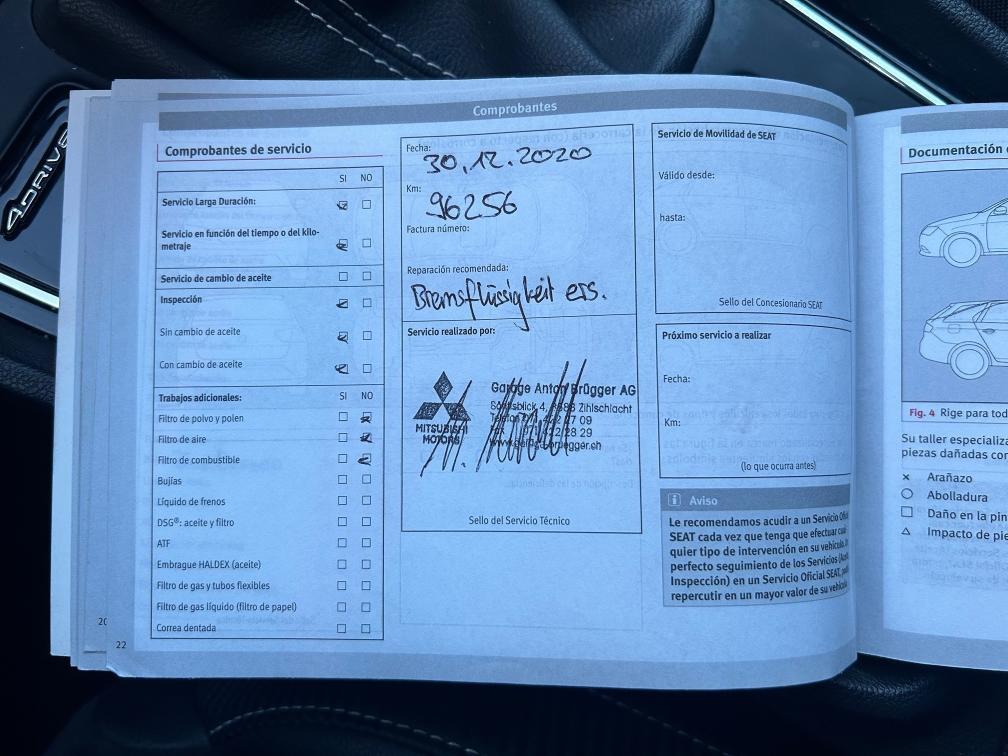 4DRIVE
Comprobantes
Comprobantes de servicio
SI NO
Servicio Larga Duración:
Servicio en función del tiempo o del kilo-
metraje
Servicio de cambio de aceite
Inspección
Sin cambio de aceite
Con cambio de aceite
Trabajos adicionales: SI NO
Filtro de polvo y polen
Filtro de aire
Filtro de combustible
Bujías
Líquido de frenos
DSG®: aceite y filtro
ATF
Embrague HALDEX (aceite)
Filtro de gas y tubos flexibles
Filtro de gas líquido (filtro de papel)
Correa dentada
22
Fecha:
30.12.2020
Km:
96256
Factura número:
Reparación recomendada:
Bremsflüssigkeit ers.
Servicio realizado por:
MITSUBISHI
MOTORS
Garage Anton Brügger AG
4, Zihlschlacht
Sello del Servicio Técnico
Servicio de Movilidad de SEAT
Válido desde:
hasta:
Sello del Concesionario SEAT
Próximo servicio a realizar
Fecha:
Km:
(lo que ocurra antes)
i Aviso
Le recomendamos acudir a un Servicio
SEAT cada vez que tenga que efectuar
quier tipo de intervención en su vehículo.
perfecto seguimiento de los Servicios
Inspección) en un Servicio Oficial SEAT,
repercutir en un mayor valor de su vehículo
Documentación
Fig. 4 Rige para tod
Su taller especializa
piezas dañadas con
Arañazo
Abolladura
Daño en la pin
Impacto de pie